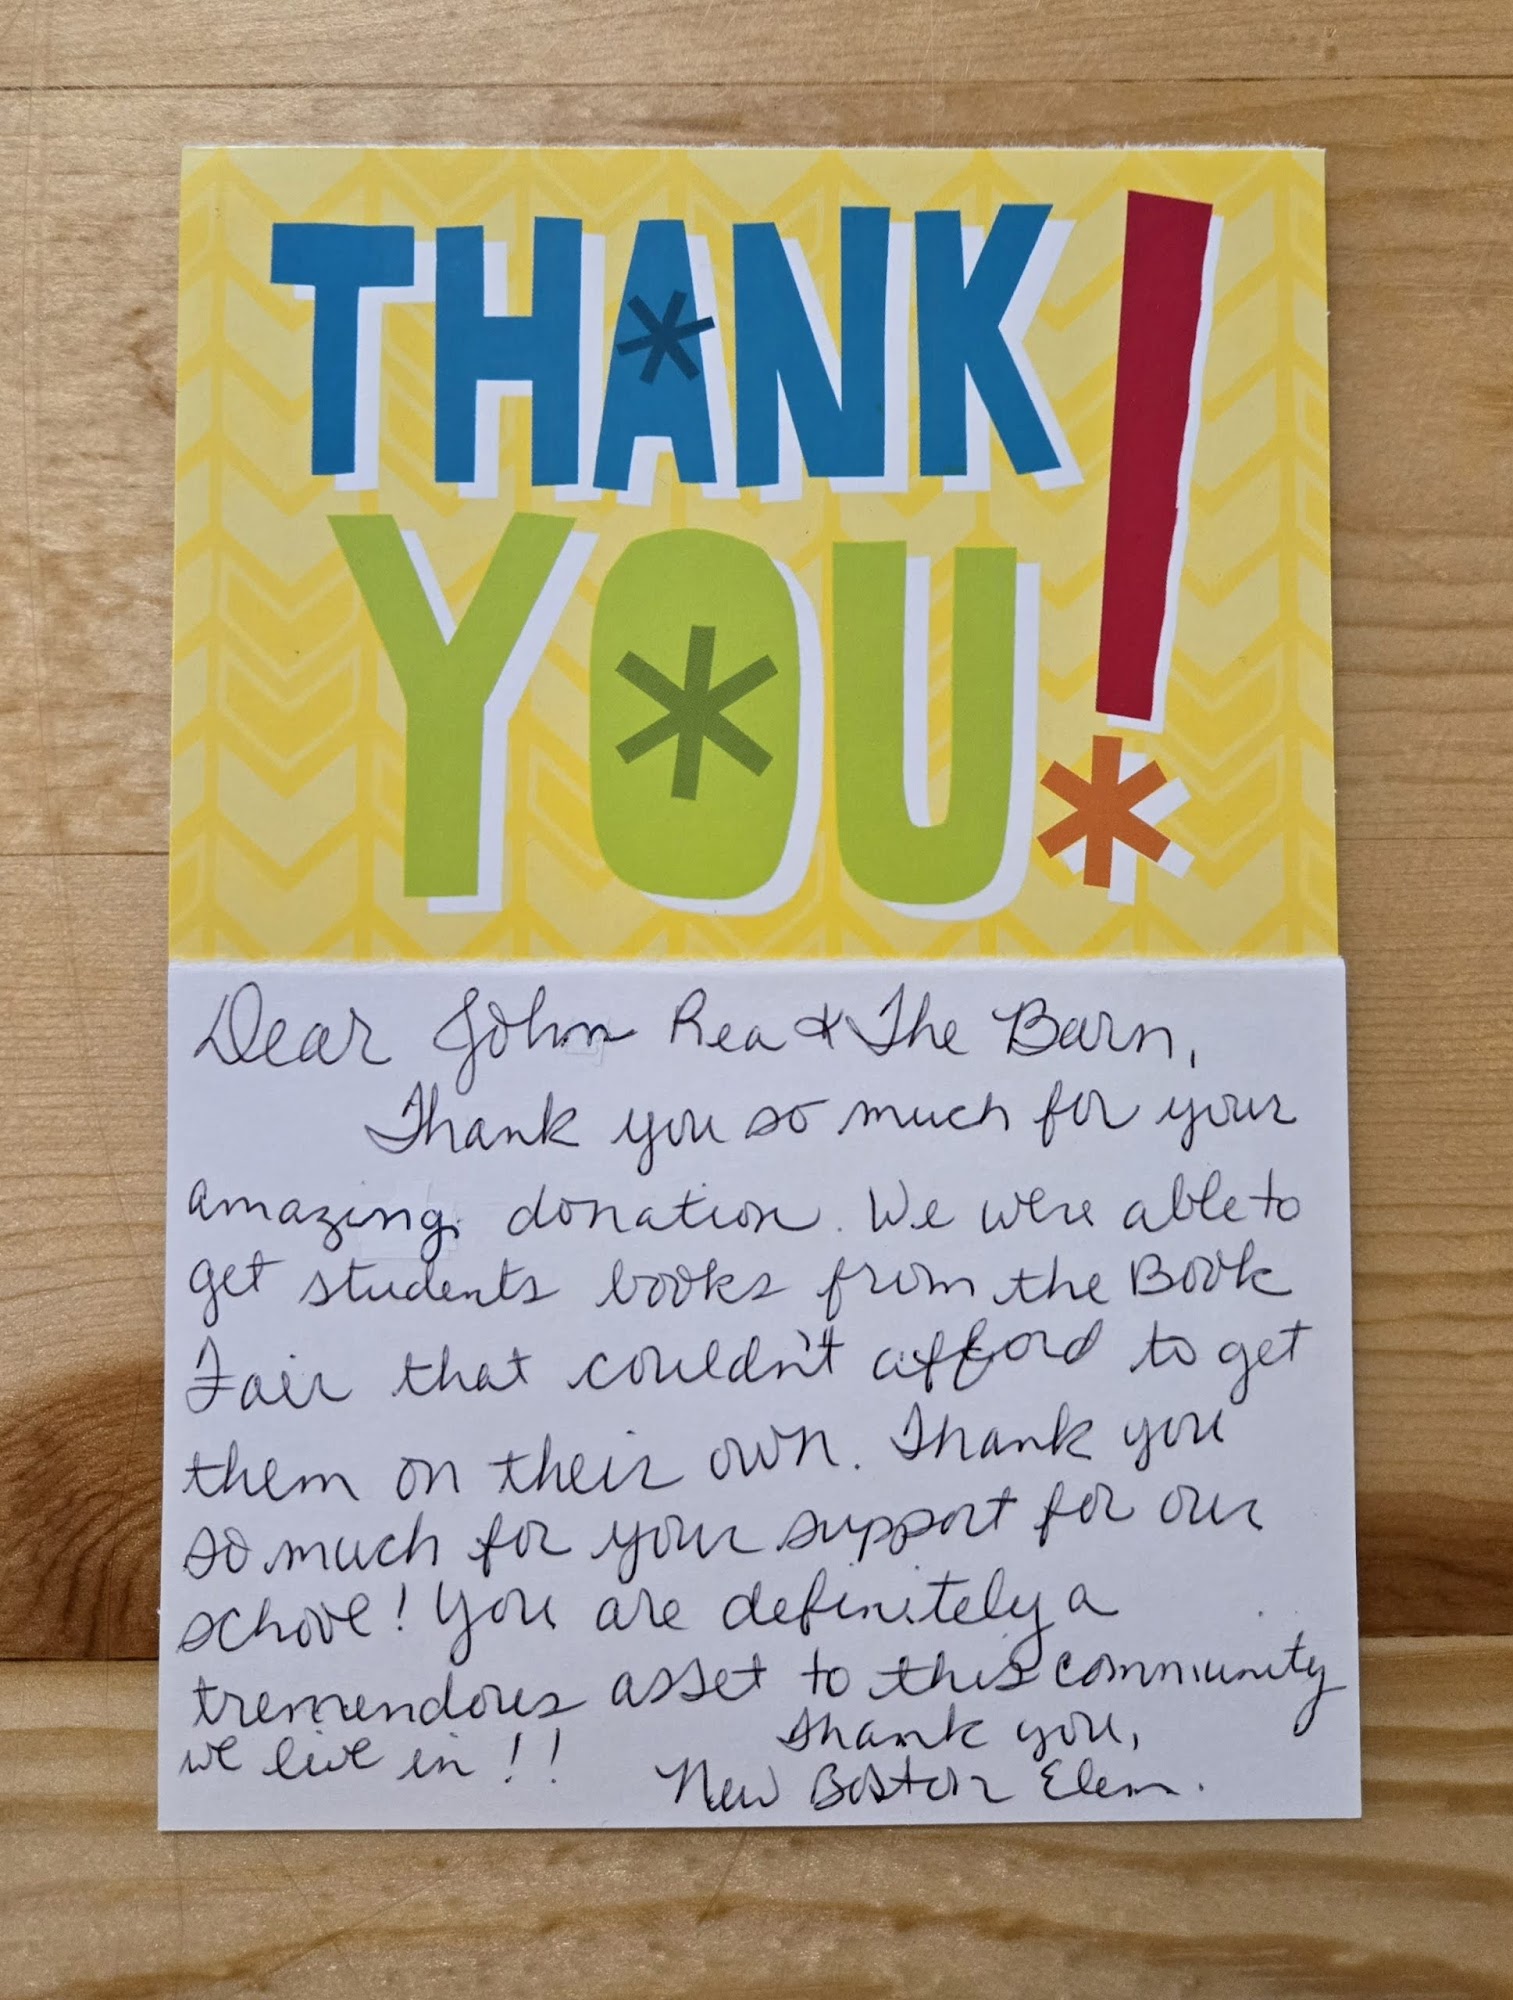 THANK
YOU!
Dear John Rea & The Barn,
Thank you so much for your
amazing donation. We were able to
get students books from the Book
Fair that couldn't afford to get
them on their own. Thank you
so much for your support for our
school! You are definitely a
tremendous asset to this community
we live in!!
Thank you,
New Boston Elem.